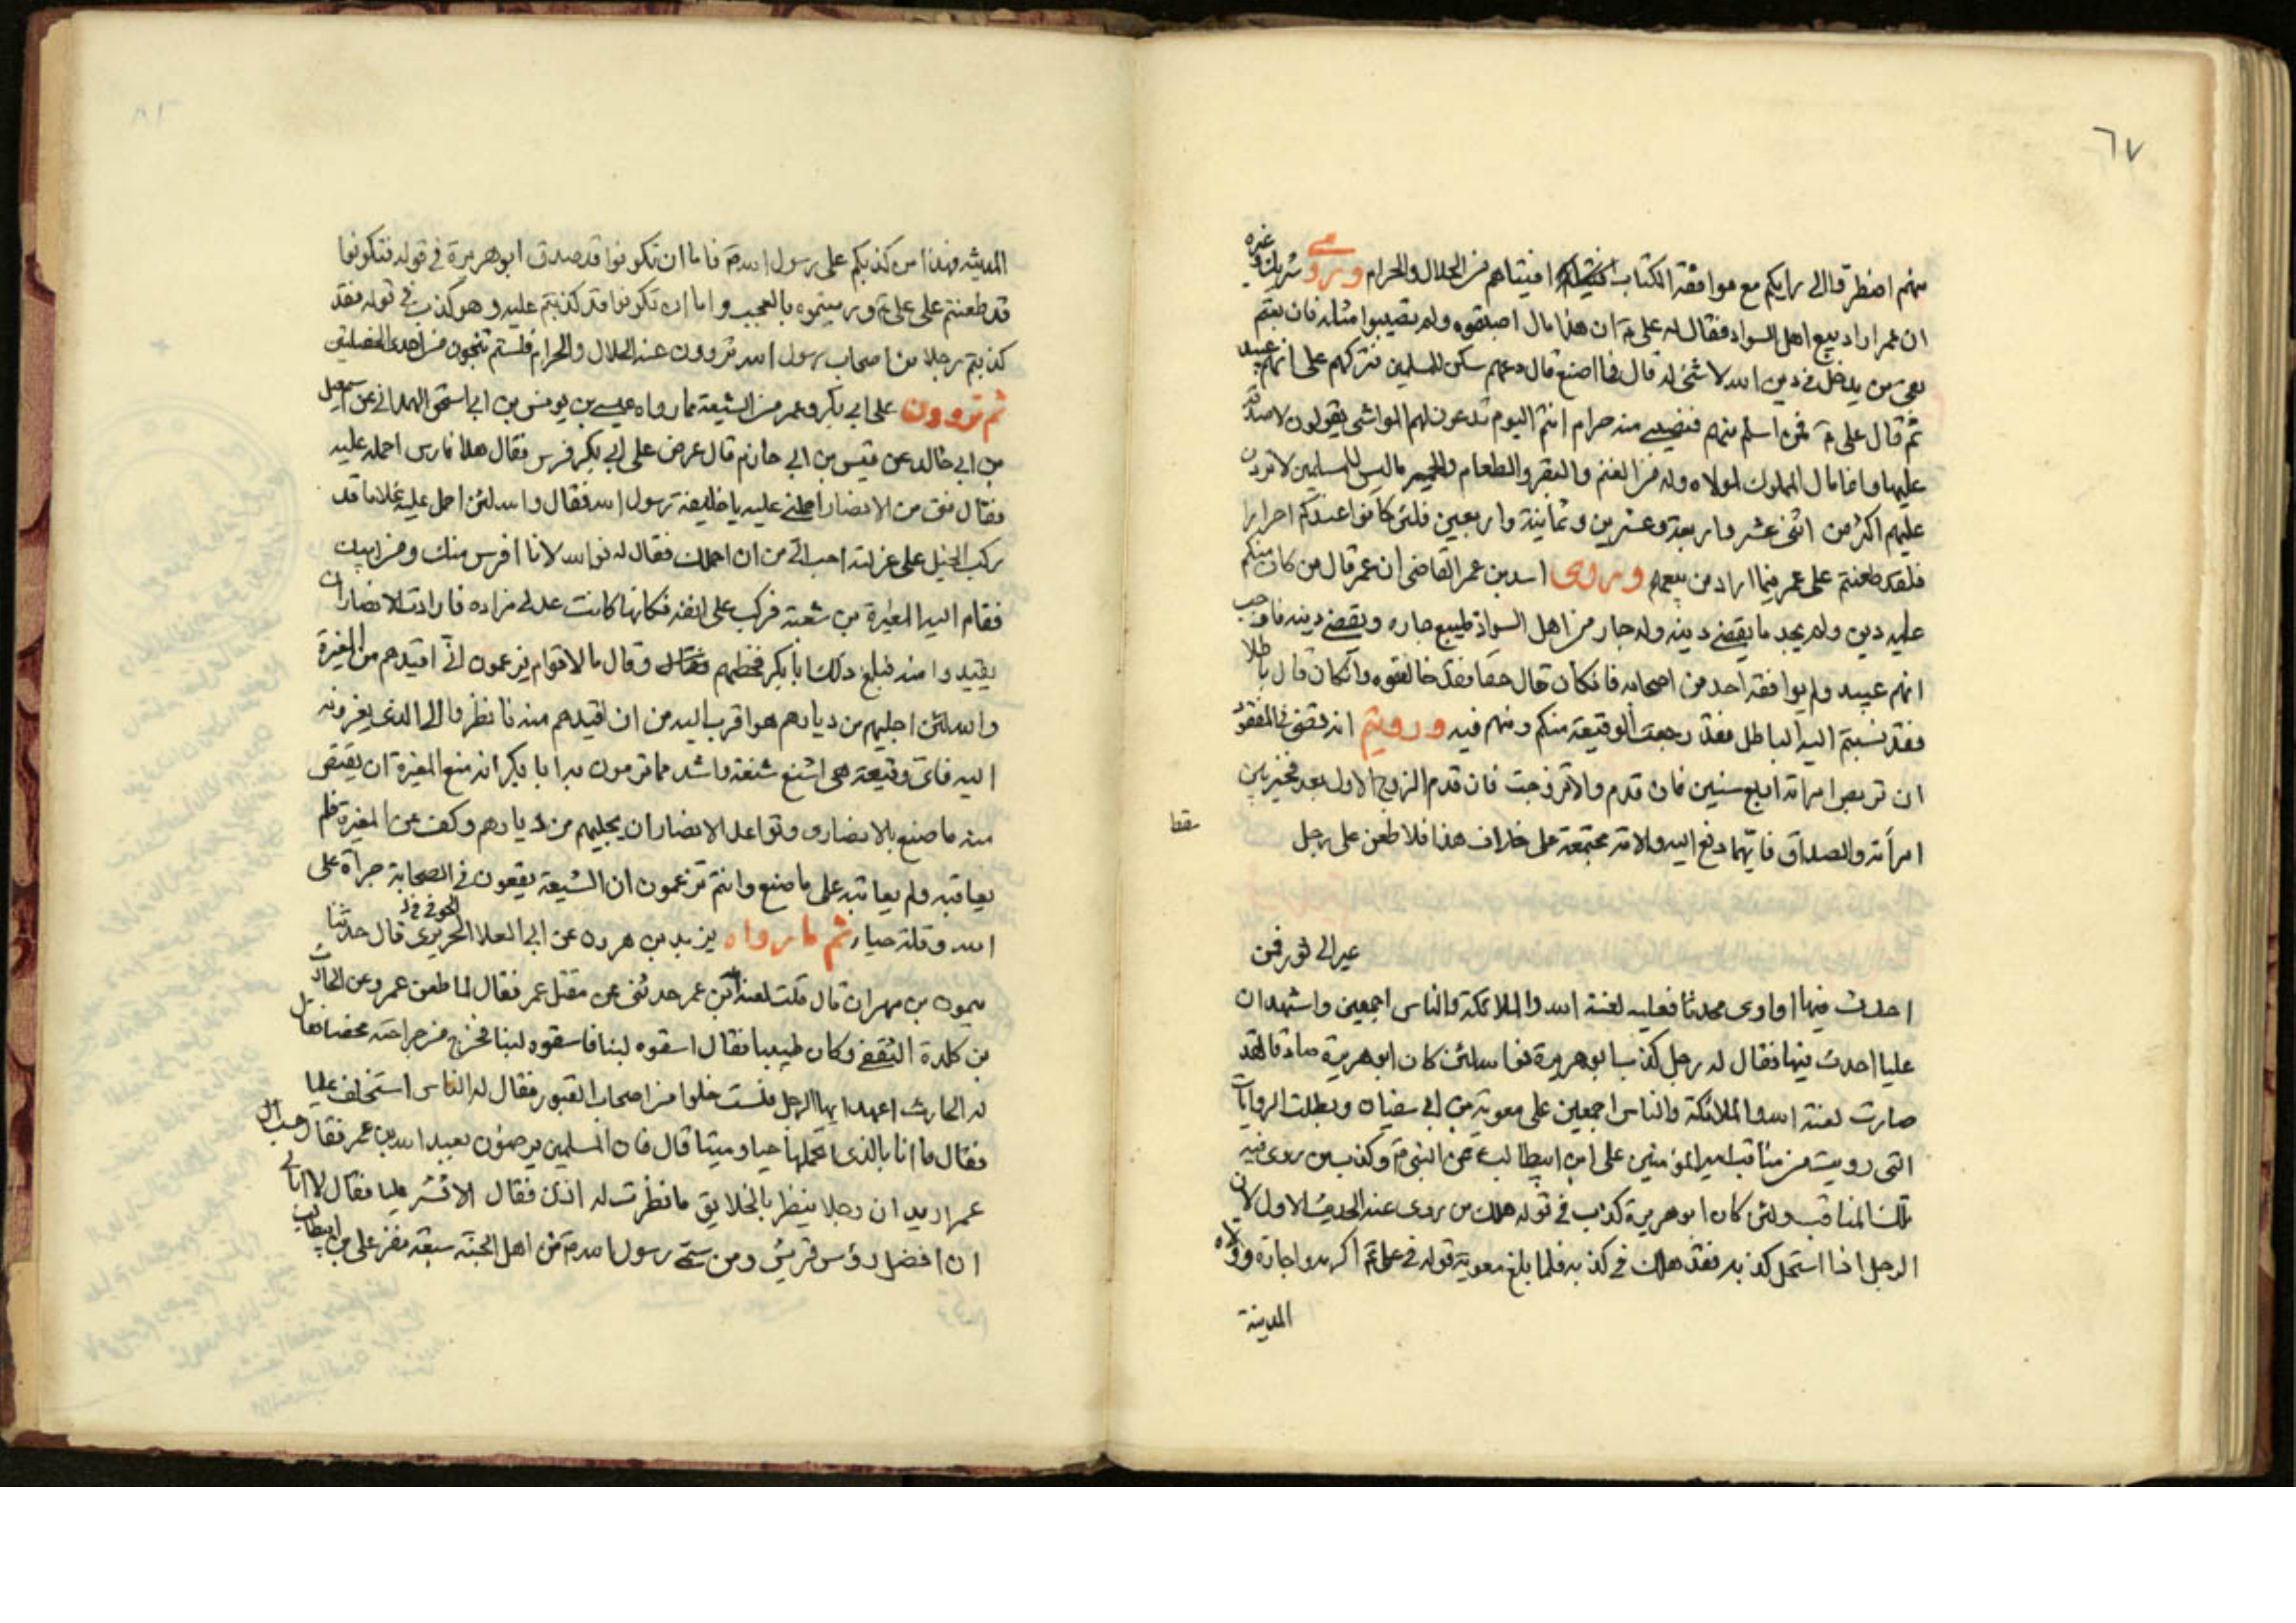 ٦٧
منهم اضطر قال الى رايكم مع موافقة الكتاب افيتاهم من الحلال والحرام وروى شريك وغيره
ان عمر اراد بيع اهل السواد فقال له على ع ان هذا مال اصبتموه ولم تصيبوا مثله فان بعتم
بقى من يدخل فى دين الله لا شئ له قال فما اصنع قال دعهم سكن للمسلمين فتركهم على انهم عبيد
ثم قال على ع فمن اسلم منهم فنصيبى منه حرام انتم اليوم تدعون لهم المواشى يقولون لا صدقة
عليها وانما مال المملوك لمولاه وله من الغنم والبقر والطعام والحمير ما ليس للمسلمين لا تزدن
عليهم اكثر من اثنى عشر واربعة وعشرين وثمانية واربعين فلئن كانوا عندكم احرارا
فلقد طعنتم على عمر فيما اراد من بيعهم وروى اسد بن عمر القاضى ان عمر قال من كان منكم
عليه دين ولم يجد ما يقضى دينه وله جار من اهل السواد فليبع جاره ويقضى دينه فاوجب
انهم عبيد ولم يوافقه احد من اصحابه فان كان قال حقا فقد خالفتموه وان كان قال باطلا
فقد نسبتم اليه الباطل فقد رجعت الوقيعة منكم ومنهم فيه ورويتم انه قضى فى المفقود
ان تربص امراته اربع سنين فان قدم والا تزوجت فان قدم الزوج الاول بعد فخير بين
امرأته والصداق فايهما دفع اليه والامة مجتمعة على خلاف هذا فلا طعن على رجل
سقط
عير الى ثور فمن
احدث فيها او اوى محدثا فعليه لعنة الله والملائكة والناس اجمعين واشهد ان
عليا احدث فيها فقال له رجل كذب ابو هريرة فوالله لئن كان ابو هريرة صادقا لقد
صارت لعنة الله والملائكة والناس اجمعين على معوية بن ابى سفيان وبطلت الروايات
التى رويت من مناقب امير المؤمنين على ابن ابيطالب عن النبى وكذب من روى فيه
تلك المناقب ولئن كان ابو هريرة كذب فى قوله هلك من روى عنه الحديث الاول لان
الرجل اذا استحل كذبه فقد هلك فى كذبه فلما بلغ معوية قوله فى على ع اكرمه واجازه وولاه
المدينة
المدينة فهذا من كذبكم على رسول الله فاما ان تكونوا قد صدق ابو هريرة فى قوله فتكونوا
قد طعنتم على على ع ورميتموه بالعجب واما ان تكونوا قد كذبتم عليه وهو كذب فى قوله فقد
كذبتم رجلا من اصحاب رسول الله تروون عنه الحلال والحرام فلستم تنجون من احدى الخصلتين
ثم تروون على ابى بكر وعمر من الشيعة ما رواه عيسى بن يونس بن ابى اسحق الهمدانى عن اسمعيل
بن ابى خالد عن قيس بن ابى حازم قال عرض على ابى بكر فرس فقال هلا فارس احمله عليه
فقال فتى من الانصار احملنى عليه يا خليفة رسول الله فقال والله لئن احمل عليه غلاما قد
ركب الخيل على غرلته احب الى من ان احملك فقال له فوالله لانا افرس منك ومن ابيك
فقام اليه المغيرة بن شعبة فركب على انفه فكانها كانت عدلى مزاده فارادت الانصار ان
يقيدوا منه فبلغ ذلك ابا بكر فخطبهم وقال ما لاقوام يزعمون انى اقيدهم من المغيرة
والله لئن اجليهم من ديارهم هو اقرب اليه من ان اقيدهم منه فانظروا الى الذى يعزونه
اليه فاى وقيعة هى اشنع شنعة واشد مما ترمون به ابا بكر انه منع المغيرة ان يقتص
منه ما صنع بالانصارى وتواعد الانصار ان يجليهم من ديارهم وكف عن المغيرة فلم
يعاقبه ولم يعاتبه على ما صنع وانتم تزعمون ان الشيعة يقعون فى الصحابة جراة على
الله وقلة حياء ثم ما رواه يزيد بن هرون عن ابى العلا الحريرى قال حدثنا
ميمون بن مهران قال قلت لعبد الله بن عمر حدثنى عن مقتل عمر فقال لما طعن عمر دعى الحارث
بن كلدة الثقفى وكان طبيبا فقال اسقوه لبنا فاسقوه لبنا فخرج من جراحته محضا فقال
له الحارث اعهد ايها الرجل فلست خلوا من اصحاب القبور فقال له الناس استخلف عليا
فقال ما انا بالذى اتحملها حيا وميتا قال فان المسلمين يرضون بعبد الله بن عمر فقال حسب ال
عمر اريد ان رجلا ينظر بالخلايق ما نظرت له اتك فقال الا تشر عليا فقال لا انا انى
ان افضل رؤس قريش ومن سمى رسول الله من اهل الجنة سبعة نفر على بن ابيطالب